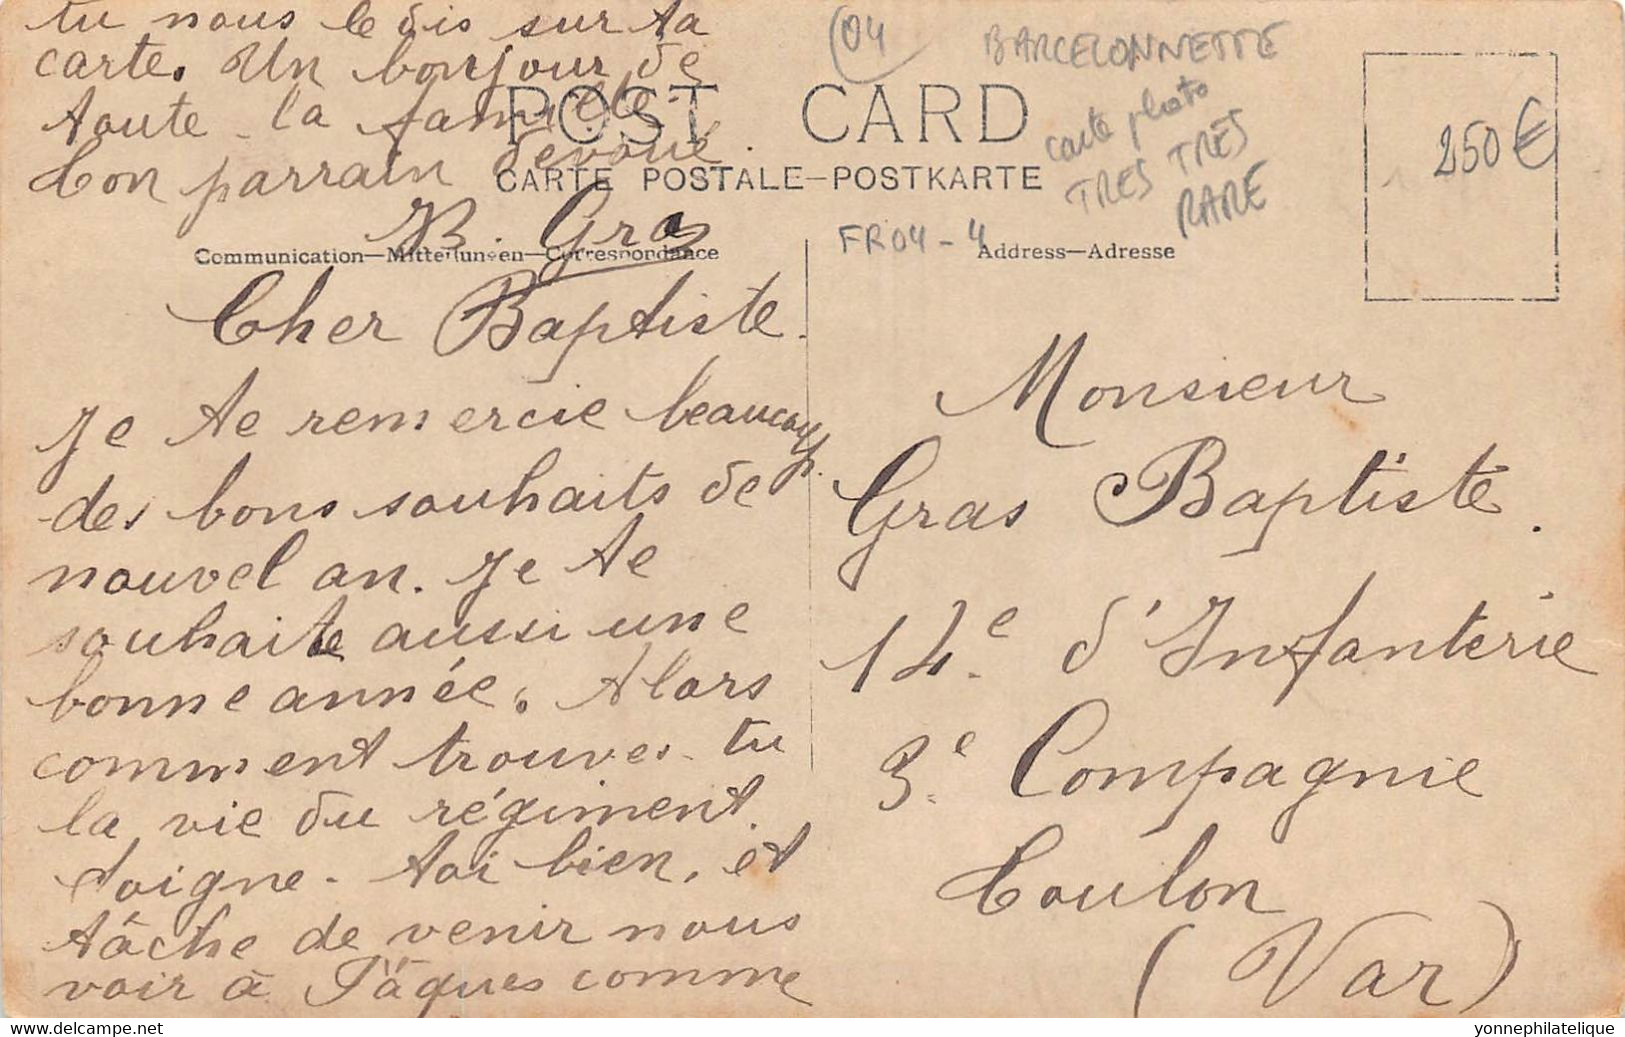 tu nous le dis sur ta
carte. Un bonjour de
toute la famille.
Ton parrain dévoué.
B. Gras
POST CARD
CARTE POSTALE—POSTKARTE
(04
BARCELONNETTE
carte photo
TRES TRES
RARE
250€
FR04-4
Communication—Mitteilungen—Correspondance
Address—Adresse
Cher Baptiste.
Je te remercie beaucoup.
des bons souhaits de
nouvel an. Je te
souhaite aussi une
bonne année. Alors
comment trouves-tu
la vie du régiment.
Soigne-toi bien, et
tâche de venir nous
voir à Pâques comme
Monsieur
Gras Baptiste.
14e d'Infanterie
3e Compagnie
Toulon
(Var)
www.delcampe.net
yonnephilatelique